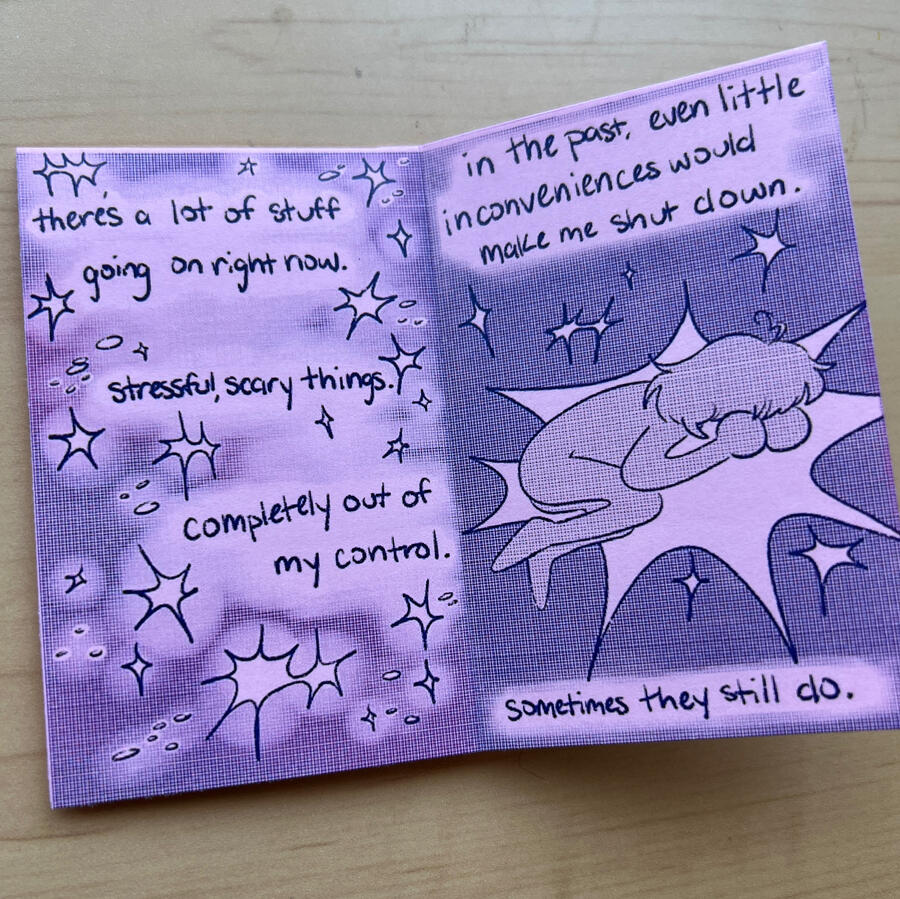 there's a lot of stuff
going on right now.
stressful, scary things.
completely out of
my control.
in the past, even little
inconveniences would
make me shut down.
sometimes they still do.